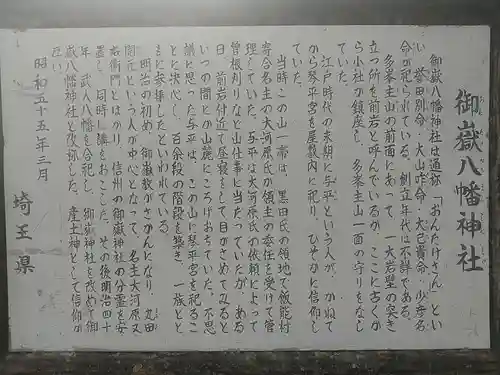 御嶽八幡神社
御嶽八幡神社は通称「おんたけさん」とい
い、誉田別命・大山咋命・大己貴命・少彦名
命が祀られている。創立年代は不詳である。
多峯主山の前面にあって、一大岩壁の突き
立つ所を前岩と呼んでいるが、ここに古くか
ら小社が鎮座し、多峯主山一面の守りをなし
ていた。
江戸時代の末期に与平という人が、かねて
から琴平宮を屋敷内に祀り、ひそかに信仰し
ていた。
当時この山一帯は、黒田氏の領地で飯能村
寄合名主の大河原氏が領主の委任を受けて管
理していた。与平は大河原氏の依頼によって
曽根刈りなど山仕事に当たっていたが、ある
日、前岩付近で昼寝をして目がさめてみると
いつの間にか山麓にころげおちていた。不思
議に思った与平は、この山に琴平宮を祀るこ
とに決心し、百余段の階段を築き、一族とと
もに参拝したといわれている。
明治の初め、御嶽教がさかんになり、丸田
開元という人が中心となって、名主大河原又
右衛門とはかり、信州の御嶽神社の分霊を安
置し、同時に講をおこした。その後明治四十
年、武人八幡を合祀し、御嶽神社を改めて御
嶽八幡神社と改称した。産土神として信仰が
昭和五十五年三月
埼玉県